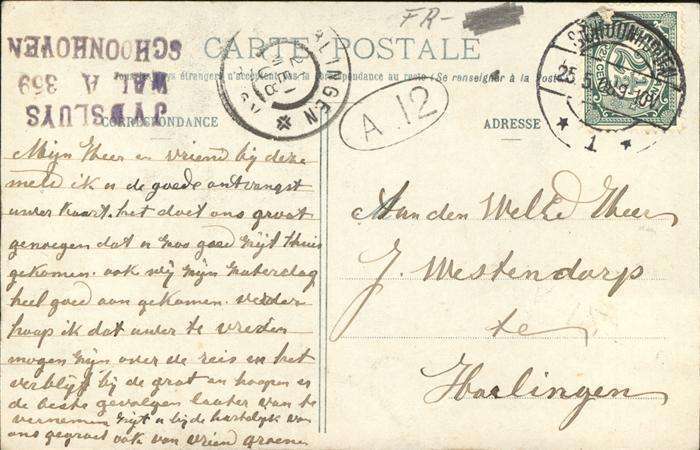 FR-
CARTE POSTALE
Tous les pays étrangers n'acceptent pas la correspondance au recto (Se renseigner à la Poste)
JYDSLUYS
WAL A 359
SCHOONHOVEN
HARLINGEN
A 12
SCHOONHOVEN
25.5 9-10V
1
CENT
CORRESPONDANCE
ADRESSE
Mijn Heer en vriend bij deze
meld ik u de goede ontvangst
uwer kaart. het doet ons groot
genoegen dat u zoo goed zijt thuis
gekomen. ook wij zijn zaterdag
heel goed aan gekomen. verder
hoop ik dat uwer te vreden
mogen zijn over de reis en het
verblijf bij de groot en hoopen er
de beste gevolgen laater van te
vernemen zijt u bij de hartelijk van
ons gegroet ook van vriend groenen
Aan den Welhd Heer
J. Westendorp
te
Harlingen